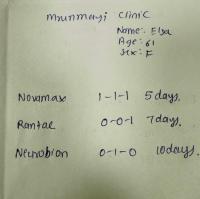 clinic
Name: Elsa
Age: 61
Sex: F
Novamax 1-1-1 5 days.
Rantac 0-0-1 7 days.
Neurobion 0-1-0 10 days.